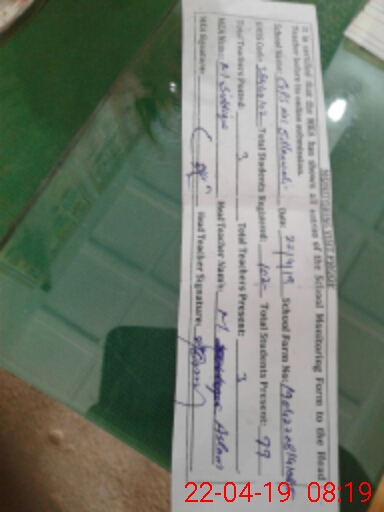 MONITORING VISIT PROOF
It is certified that the MEA has shown all entries of the School Monitoring Form to the Head
Teacher before its online submission.
School Name: GPS Date: 22/4/19 School Form No:
EMIS Code: Total Students Registered: 102 Total Students Present: 99
Total Teachers Posted: 3 Total Teachers Present: 3
MEA Name: M Siddique Head Teacher Name: M Aslam
MEA Signature: Head Teacher Signature:
22-04-19 08:19